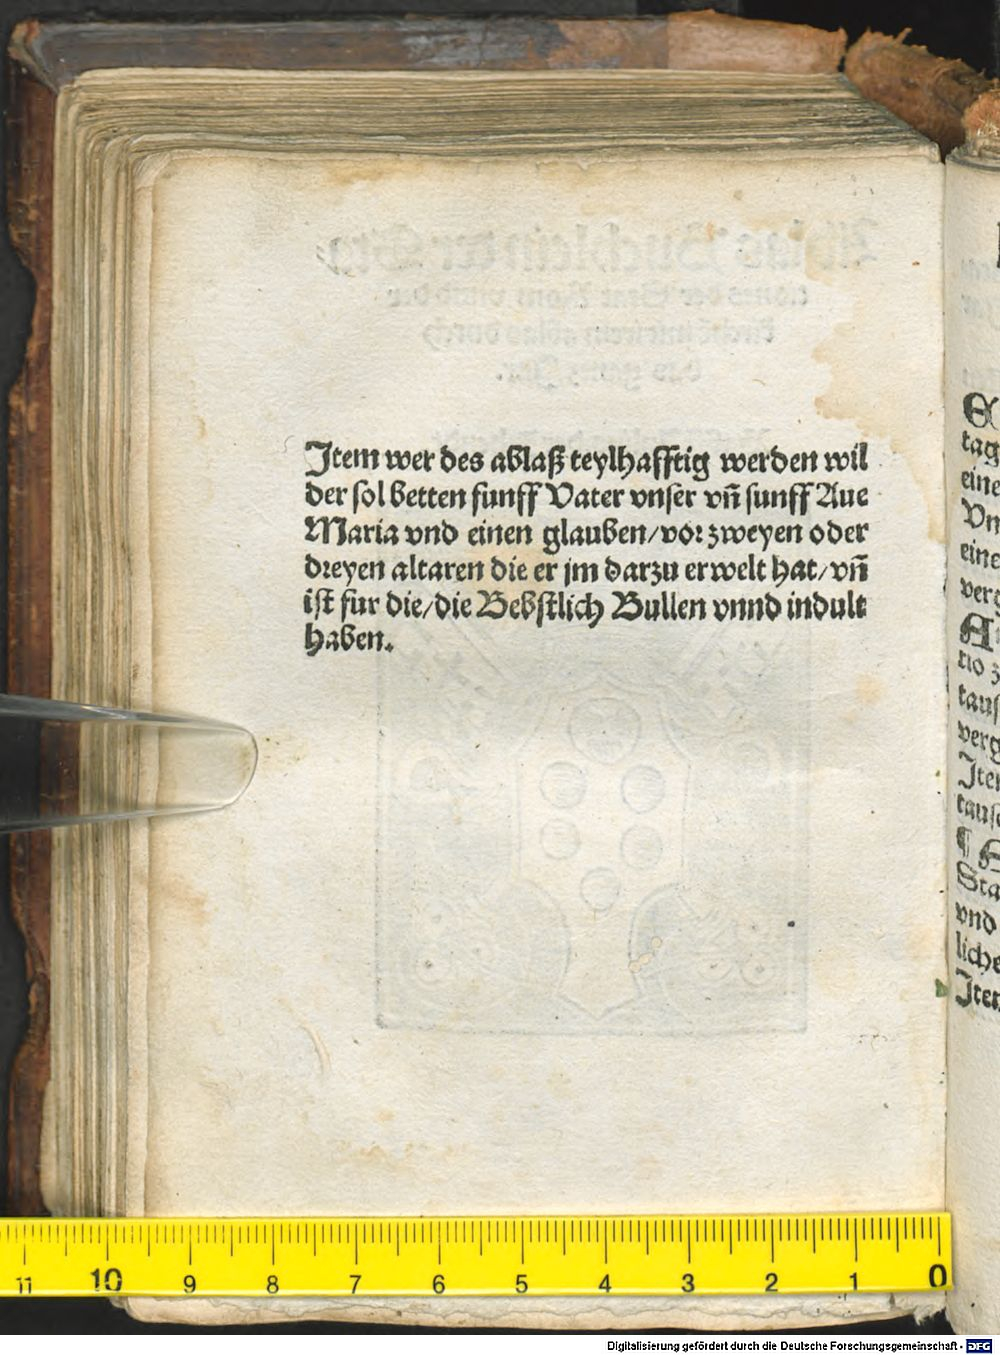 Item wer des ablaß teylhafftig werden wil
der sol betten funff Vater vnser vñ funff Aue
Maria vnd einen glauben/vor zweyen oder
dreyen altaren die er jm darzu erwelt hat/vñ
ist fur die/die Bebstlich Bullen vnnd indult
haben.
tag
eine
Vn
eine
verg
tio z
taus
verg
Iter
tause
Sta
vnd
liche
Iter
11 10 9 8 7 6 5 4 3 2 1 0
Digitalisierung gefördert durch die Deutsche Forschungsgemeinschaft - DFG